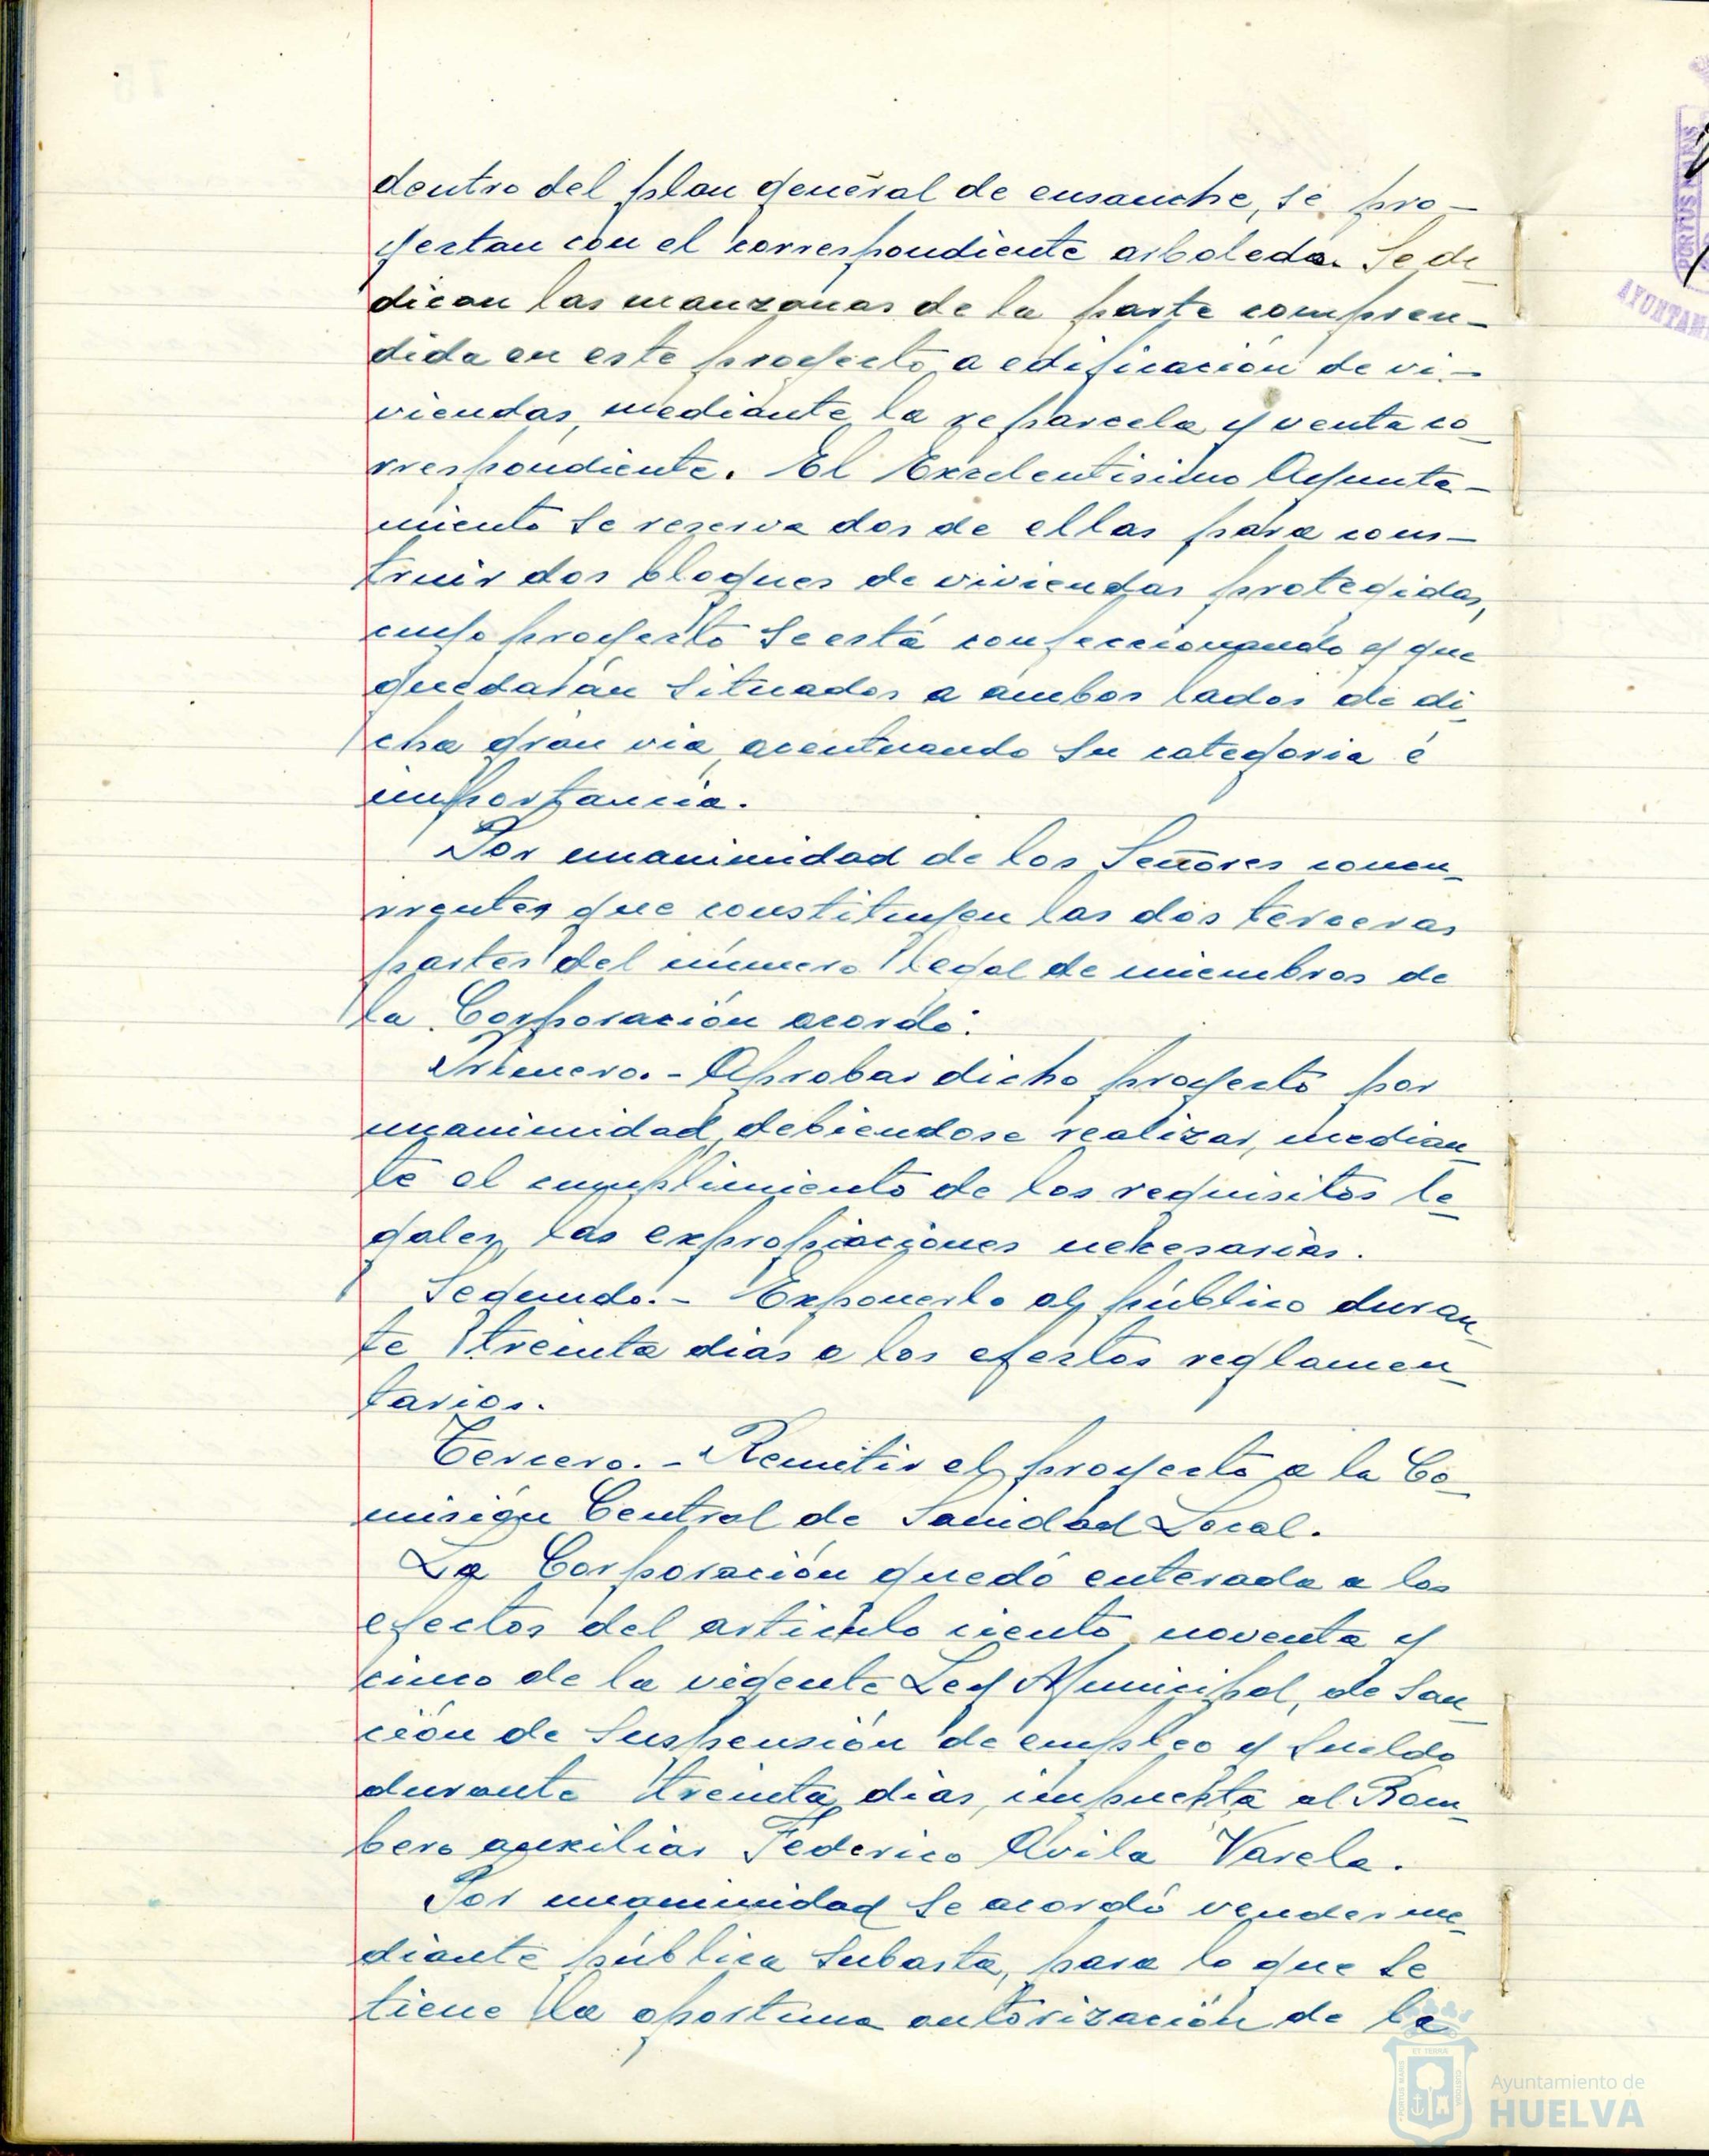 dentro del plan general de ensanche, se pro-
yectan con el correspondiente arboleda. Se de
dican las manzanas de la parte compren-
dida en este proyecto a edificación de vi-
viendas, mediante la reparcela y venta co-
rrespondiente. El Excelentisimo Ayunta-
miento se reserva dos de ellas para cons-
truir dos bloques de viviendas protegidas,
cuyo proyecto se está confeccionando y que
quedarán situados a ambos lados de di-
cha gran via, acentuando su categoria é
importancia.
Por unanimidad de los Señores concu-
rrentes que constituyen las dos terceras
partes del número legal de miembros de
la Corporación acordó:
Primero.- Aprobar dicho proyecto por
unanimidad, debiendose realizar, median-
te el cumplimiento de los requisitos le-
gales, las expropiaciones necesarias.
Segundo.- Exponerlo al público duran-
te treinta dias a los efectos reglamen-
tarios.
Tercero.- Remitir el proyecto a la Co-
misión Central de Sanidad Local.
La Corporación quedó enterada a los
efectos del articulo ciento noventa y
cinco de la vigente Ley Municipal, de San-
ción de suspensión de empleo y sueldo
durante treinta dias, impuesta al Bom-
bero auxiliar Federico Avila Varela.
Por unanimidad se acordó vender me-
diante pública subasta, para lo que se
tiene la oportuna autorización de la
PORTUS MARIS
AYUNTAM
Ayuntamiento de
HUELVA